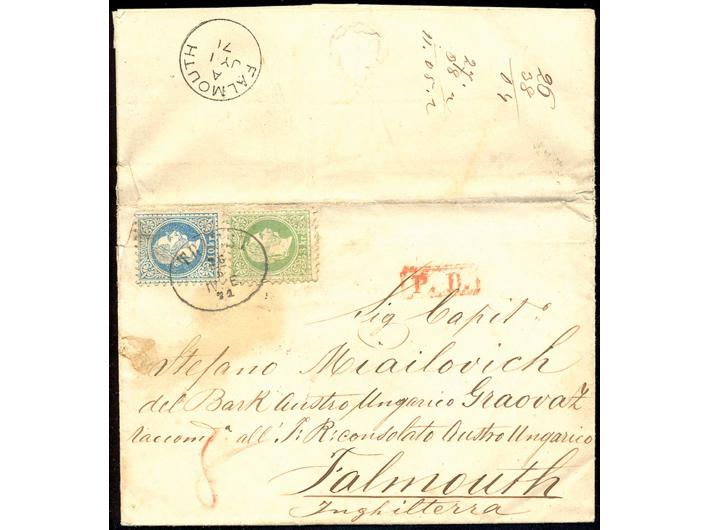 FALMOUTH
1
JY 4
71
26
38
04
27.2
08
11.05.2
10 Kr
3 Kr
P.D.
Sig Capit°
Stefano Miailovich
del Bark Austro Ungarico Graovaz
raccomᵃ all' I: R: consolato Austro Ungarico
Falmouth
Inghilterra